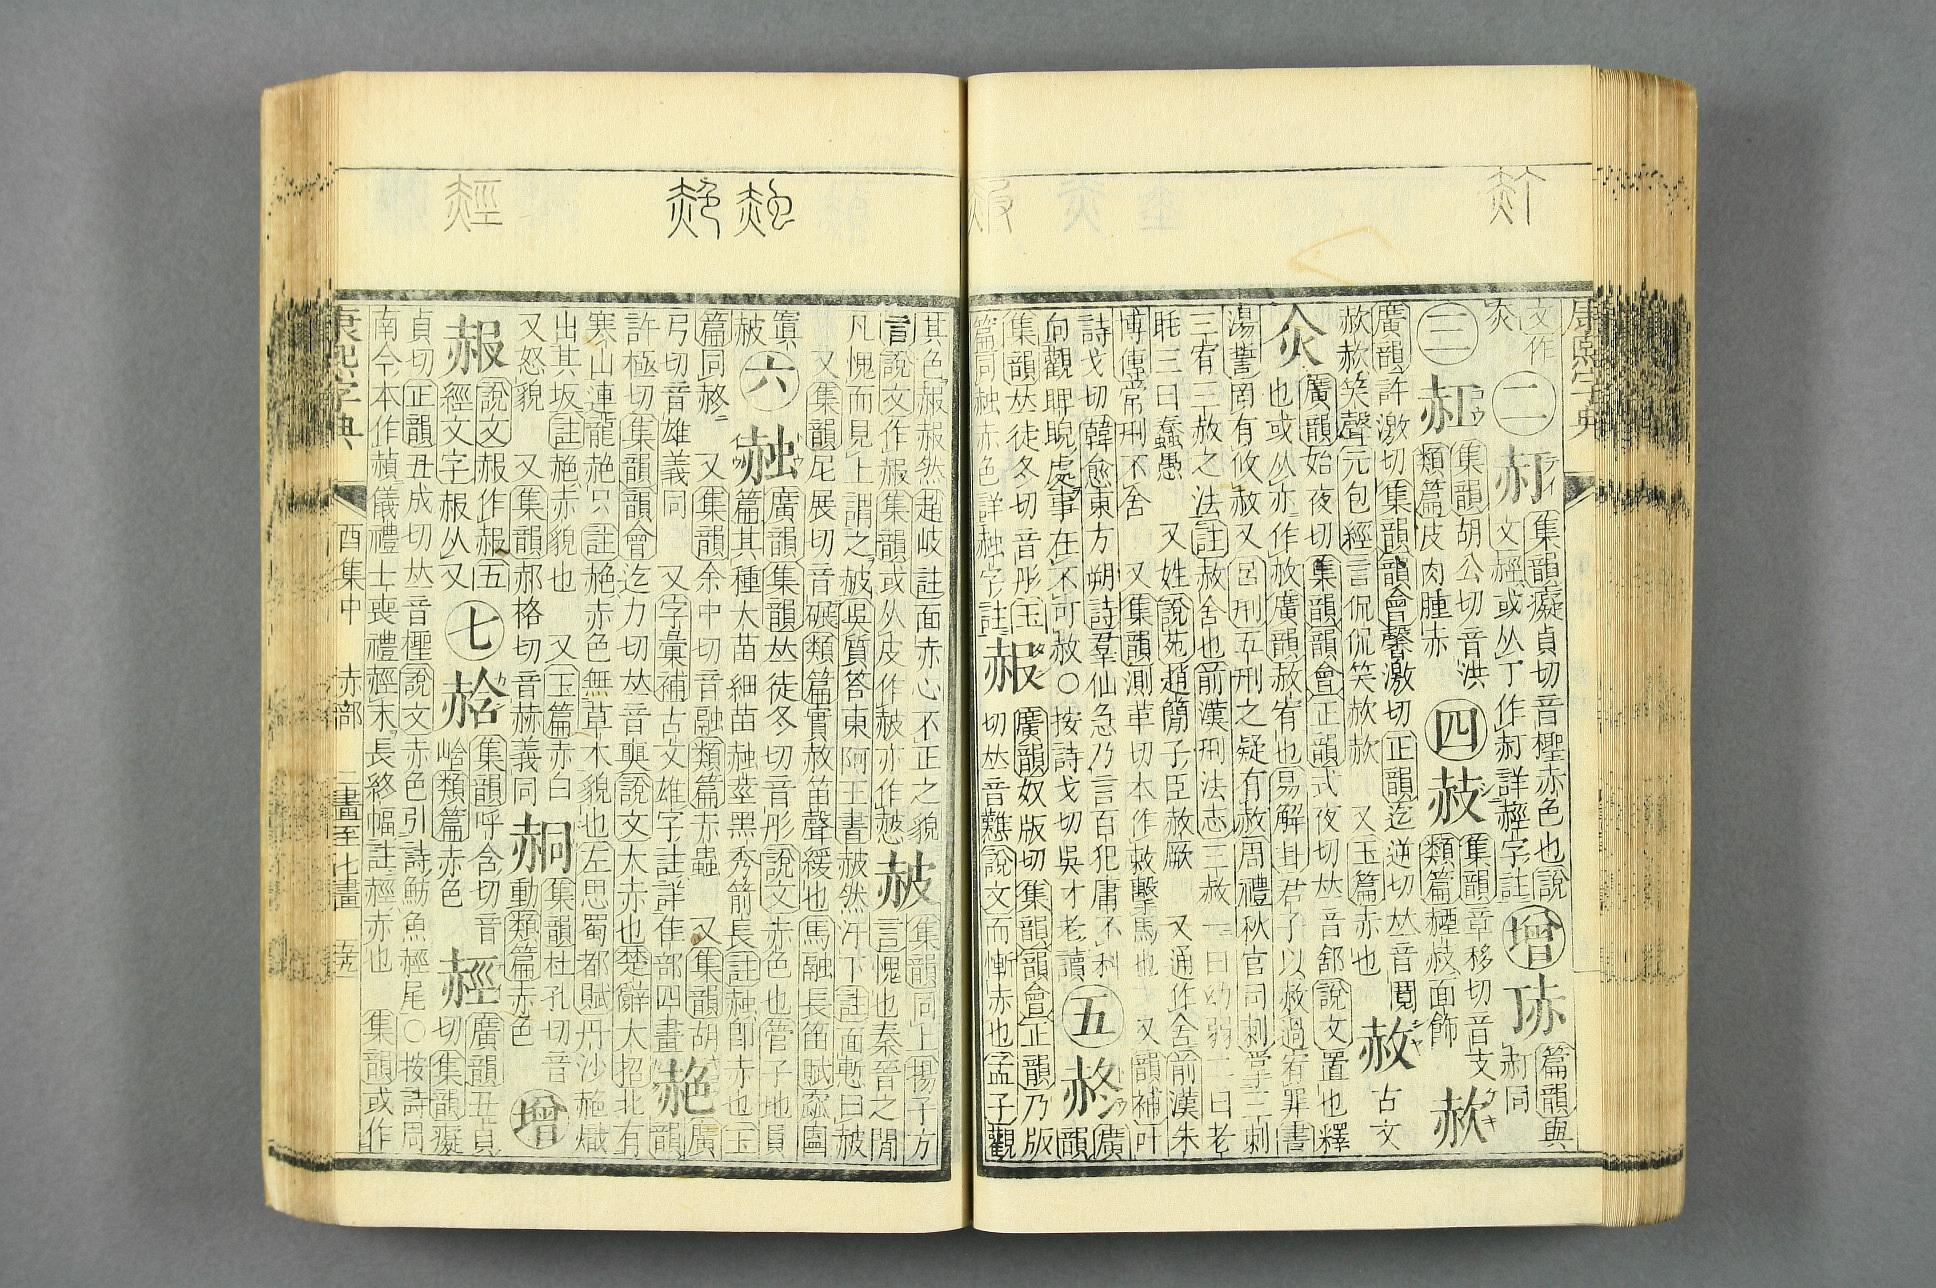 康熙字典
文作
灻
二
𧹛
集韻癡貞切音檉赤色也說
文䞓或从丁作𧹛詳䞓字註
增
篇韻與
𧹛同
三
集韻胡公切音洪
類篇皮肉腫赤
四
集韻章移切音支
面飾
赥
廣韻許激切集韻韻會馨激切正韻迄逆切𠀤音鬩
赥赥笑聲元包經言侃侃笑赥赥 又玉篇赤也
赦
古文
灻
廣韻始夜切集韻韻會正韻式夜切𠀤音舒說文置也釋
也或从亦作𢼜廣韻赦宥也易解卦君子以赦過宥罪書
湯誓罔有攸赦又呂刑五刑之疑有赦周禮秋官司刺掌三刺
三宥三赦之法註赦舍也前漢刑法志三赦一曰幼弱二曰老
眊三曰蠢愚 又姓說苑趙簡子臣赦厥 又通作舍前漢朱
博傳常刑不舍 又集韻測革切本作敕擊馬也 又韻補叶
詩戈切韓愈東方朔詩羣仙急乃言百犯庸不科
向觀睥睨處事在不可赦○按詩戈切吳才老讀
五
廣
韻
集韻𠀤徒冬切音彤玉
篇同赨赤色詳赨字註
赧
廣韻奴版切集韻韻會正韻乃版
切𠀤音戁說文面慚赤也孟子觀
其色赧赧然趙岐註面赤心不正之貌
言說文作赧集韻或从皮作
集韻同上揚子方
言愧也秦晉之閒
凡愧而見上謂之 吳質答東阿王書 然汗下註面慙曰
又集韻尼展切音碾類篇 笛聲緩也馬融長笛賦
窴
六
赨
廣韻集韻𠀤徒冬切音彤說文赤色也管子地員
篇其種大苗細苗赨莖黑秀箭長註赨卽赤也玉
篇同 又集韻余中切音融類篇赤蟲 又集韻胡
弓切音雄義同 又字彙補古文雄字註詳隹部四畫
赩
廣
韻
許極切集韻韻會迄力切𠀤音衋說文大赤也楚辭大招北有
寒山逴龍赩只註赩赤色無草木貌也左思蜀都賦丹沙赩熾
出其坂註赩赤貌也 又玉篇赤白
又怒貌 又集韻郝格切音赫義同
集韻杜孔切音
動類篇赤色
增
赧
說文赧作赧五
經文字赧从又
七
集韻呼含切音
峆類篇赤色
䞓
廣韻丑貞
切集韻癡
貞切正韻丑成切𠀤音檉說文赤色引詩魴魚䞓尾○按詩周
南今本作赬儀禮士喪禮䞓末長終幅註䞓赤也 集韻或作
康熙字典 酉集中 赤部 二畫至七畫